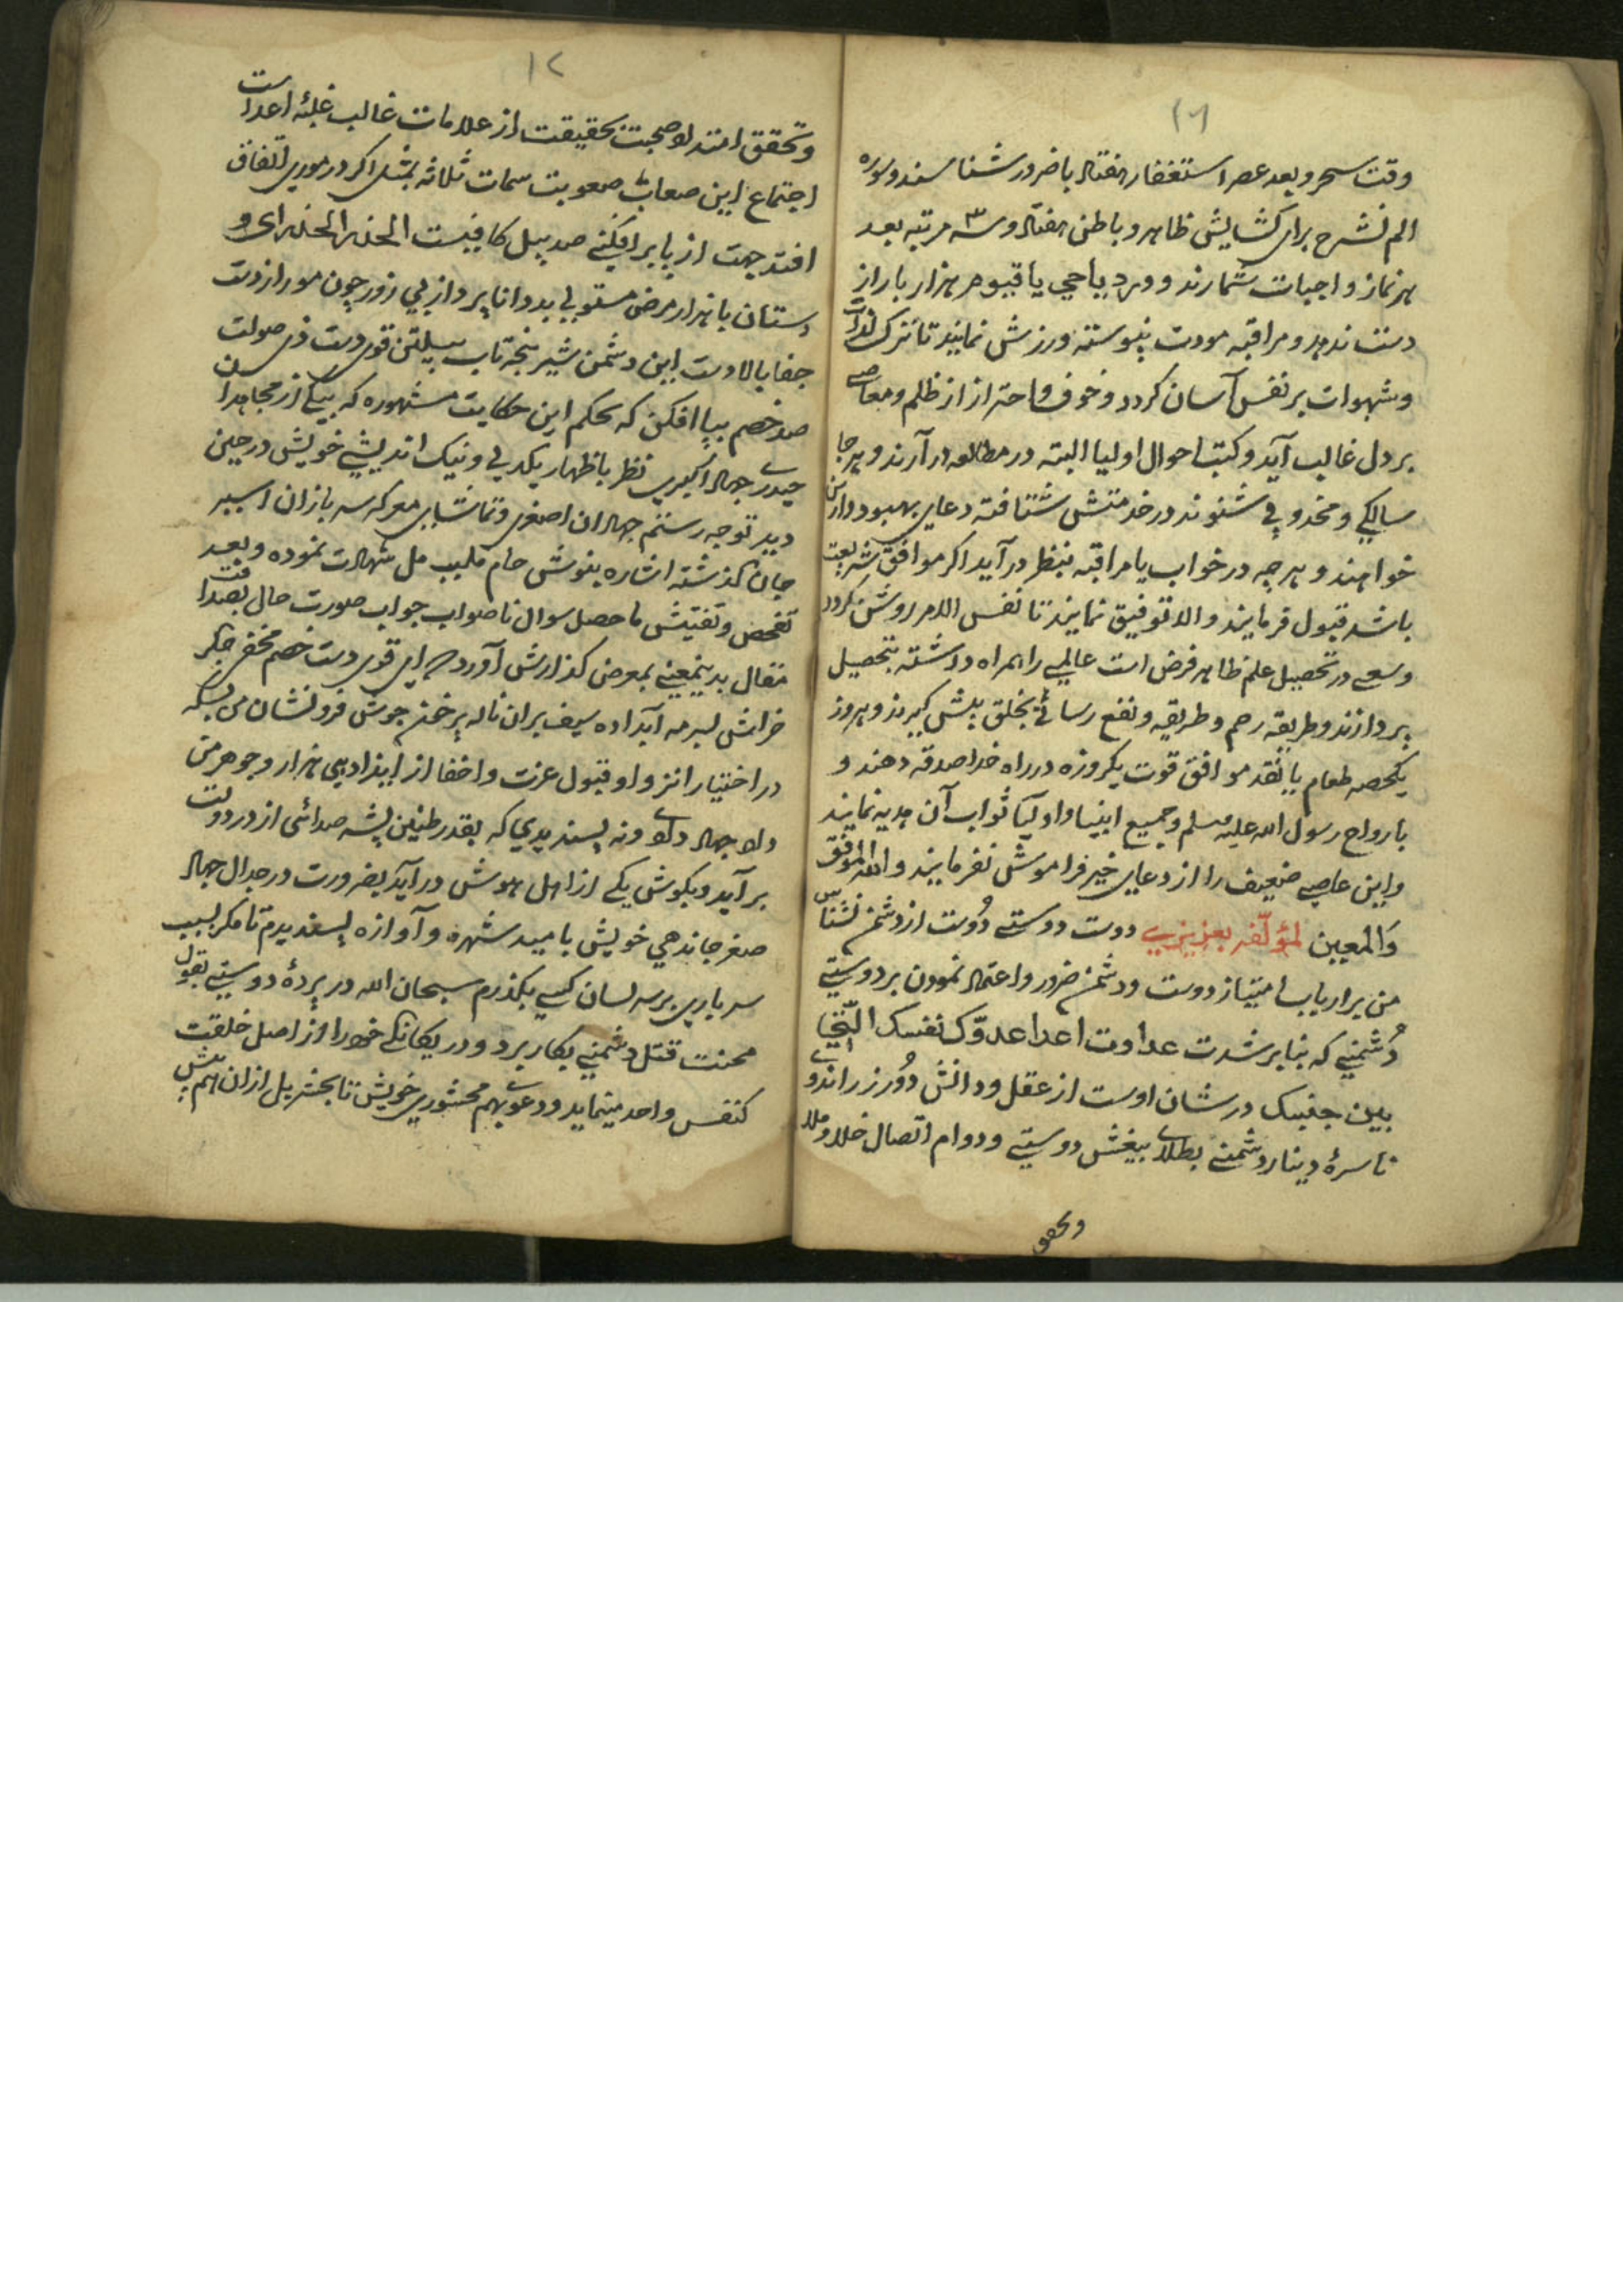 وقت سحر و بعد عصر استغفار هفتاد بار ضرور شناسند و سوره
الم نشرح برای کشایش ظاهر و باطن هفتاد و سه ۳ مرتبه بعد
هر نماز و اجبات شمارند و ورد یا حی یا قیوم هزار بار از
دست ندهد و مراقبه مودت پیوسته ورزش نمایند تا ترک لذات
و شهوات بر نفس آسان کردد و خوف و احتراز از ظلم و معاصی
بر دل غالب آید و کتب احوال اولیا البته در مطالعه در آرند و هر جا
سالکی و مجذوبی شنوند در خدمتش شتافته دعای بهبود دارین
خواهند و هر چه در خواب یا مراقبه بنظر در آید اکر موافق شریعت
باشد قبول فرمایند و الا توفیق نمایند تا نفس الامر روشن کردد
و سعی در تحصیل علم ظاهر فرض است عالمی را همراه داشته بتحصیل
پردازند و طریقه رحم و طریقه و نفع رسانی بخلق پیش کیرند و هر روز
یکحصه طعام یا نقد موافق قوت یکروزه در راه خدا صدقه دهند و
بارواح رسول الله علیه وسلم و جمیع انبیا و اولیا ثواب آن هدیه نمایند
و این عاصی ضعیف را از دعای خیر فراموش نفرمایند و الله الموفق
و المعین لمؤلفه بعزیزی دوست دوستی دوست از دشمن نشناس
من برارباب امتیاز دوست و دشمن ضرور و اعتماد نمودن بر دوستی
دشمنی که بنابر شدت عداوت اعدا عدوک نفسک التی
بین جنبیک در شان اوست از عقل و دانش دور زر اندوی
ناسره دینار دشمنی بطلای بیغش دوستی و دوام اتصال خلا و ملا
وتحقق
۱۲
وتحقق امتداد صحبت بحقیقت از علامات غالب غلبه اعداست
اجتماع این صعاب صعوبت سمات ثلاثه بمثل اکر در موری اتفاق
افتد جهت از پا برافکنی صد پیل کافیست الحذر الحذر ای و
دستان با هزار مرض مستولی بددوانا پرداز بی زور چون مور از دست
جفا بالادست این دشمن شیر پنجه تاب پیلتن قوی دست ذی صولت
صد خصم بپا افکن که بحکم این حکایت مشهوره که یکی از مجاهدان
حیدری جهاد اکبری نظر باظهار یکدلی و نیک اندیشی خویش در حین
دیدن توجه رستم جهادان اصغری و تماشای معرکه سربازان اسپر
جان کذشته اشاره بنوش جام ملبب مل شهادت نموده و بعد
تفحص و تفتیش ما حصل سوال ناصواب جواب صورت حال بصداقت
مقال بدینمعنی بمعرض کذارش آورد که ای قوی دست خصم جکر
خراش لب‍ مه آبداده سیف بران ناله پر خون جوش فرونشان من بسکه
در اختیار انزوا و قبول عزت و اخفا از ایذادهی هزار و جوهر من
دلا جهاد دلاوانه پسندیدی که بقدر طنین پشه صدائی از در دولت
بر آید و بکوش یکی از اهل هوش در آید بضرورت در جدال جهاد
صغر جاندهی خویش بامید شهره و آوازه پسندیدم تا مکر بسبب
سرباری بر سر لسان کسی بکذرم سبحان الله در پرده دوستی بقول
محنت قتل دشمنی بکار برد و در یکانکی خود را از اصل خلقت
کنفس واحد مینماید و دعوی بهم محشوری خویش تا بحشر بل ازان هم پیش